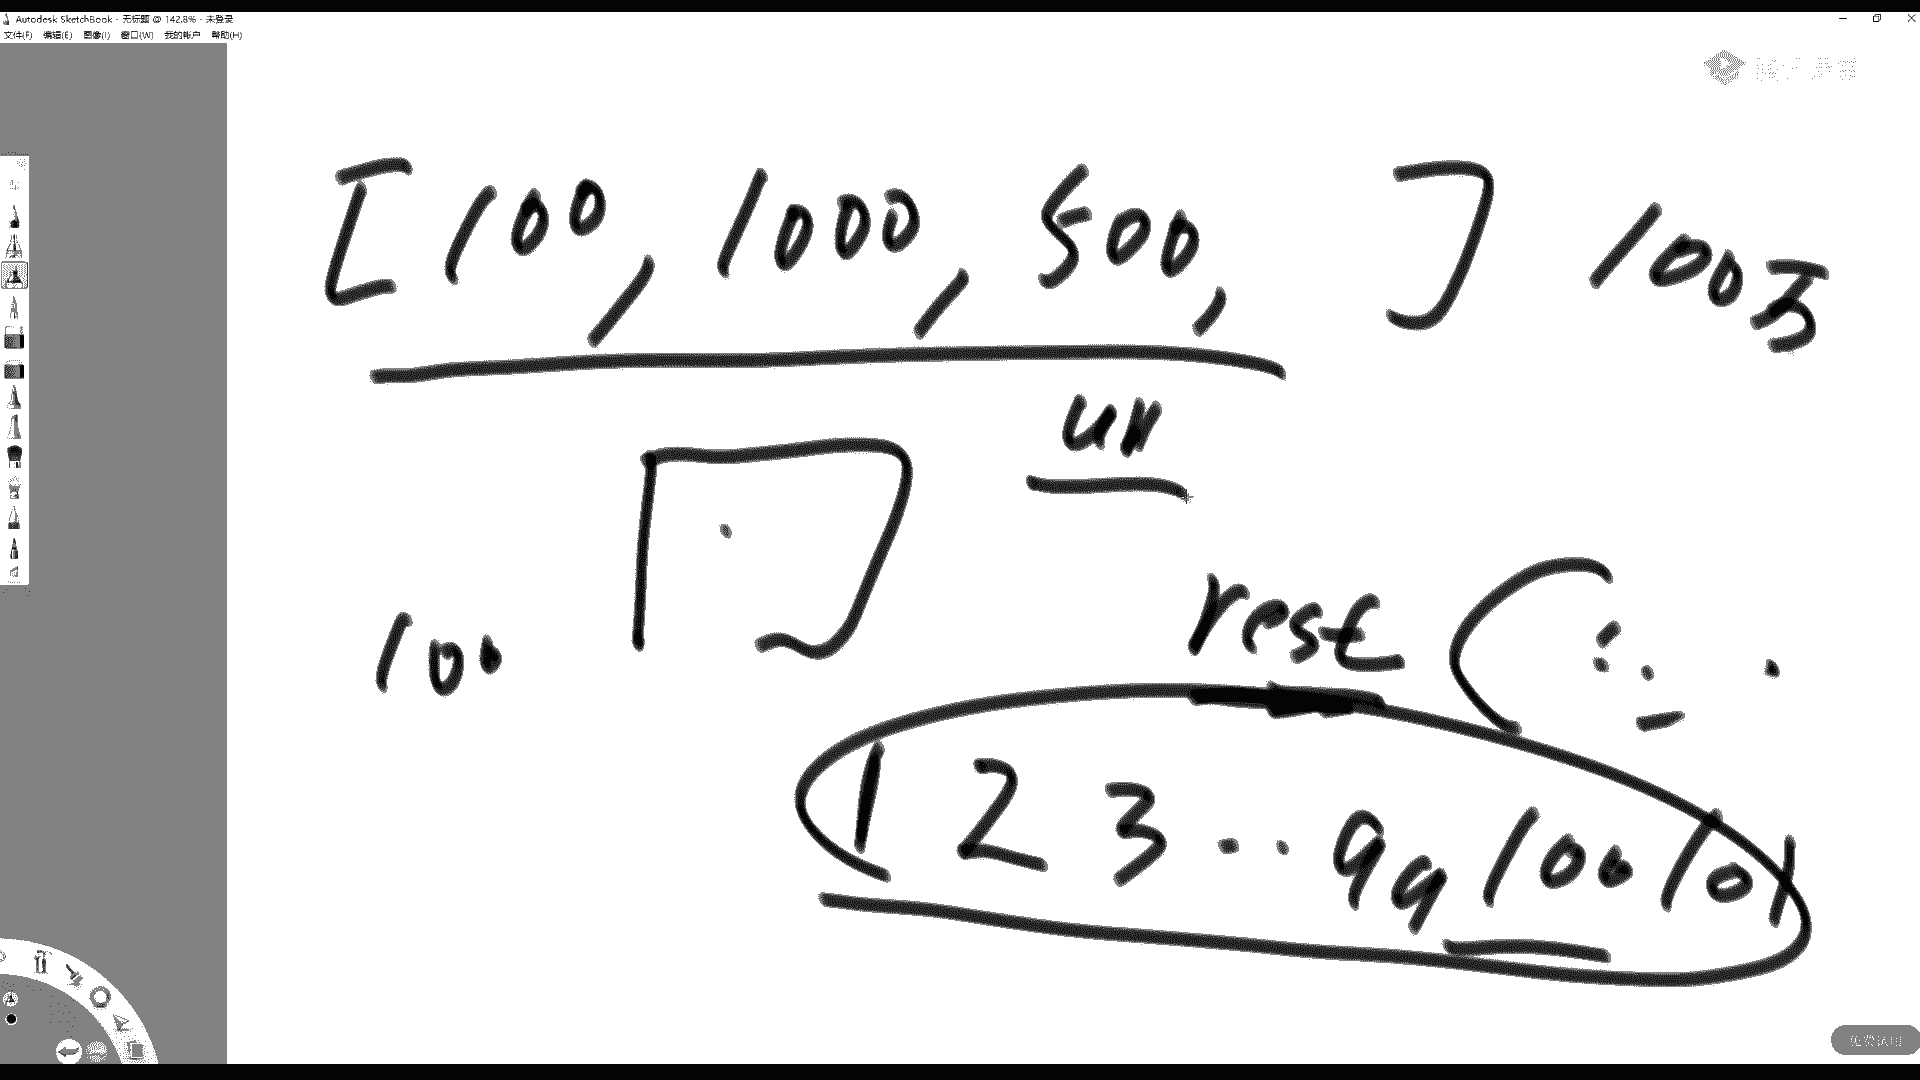 Autodesk SketchBook - 无标题 @ 142.8% - 未登录
文件(F) 编辑(E) 图像(I) 窗口(W) 我的帐户 帮助(H)
[100, 1000, 500, ] 100万
uv
100
rest (
1 2 3 .. 99 100 101